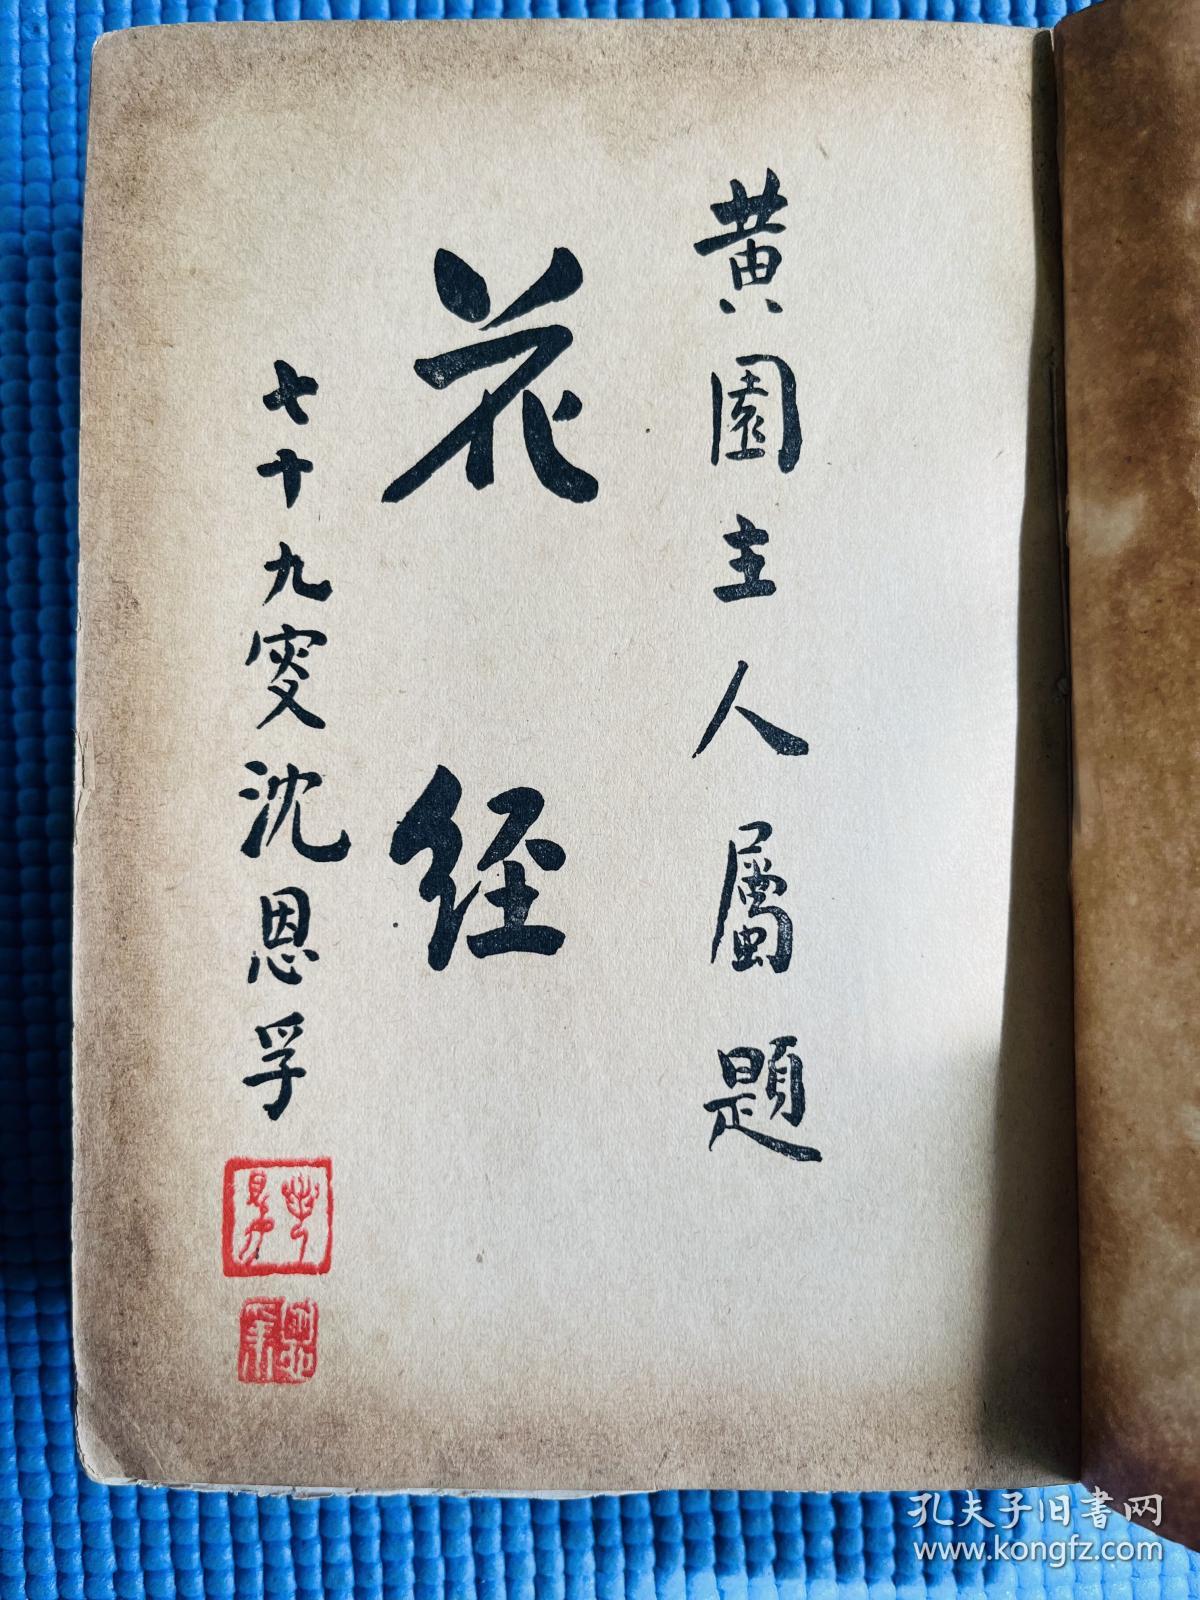 黄園主人屬題
花经
七十九叟沈恩孚
孔夫子旧書网
www.kongfz.com